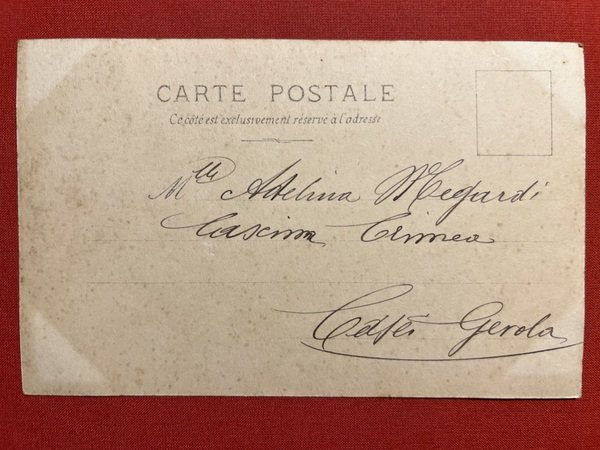 CARTE POSTALE
Ce côté est exclusivement réservé à l'adresse
Mlle Adelina Megardi
Cascina Crimea
Gerola